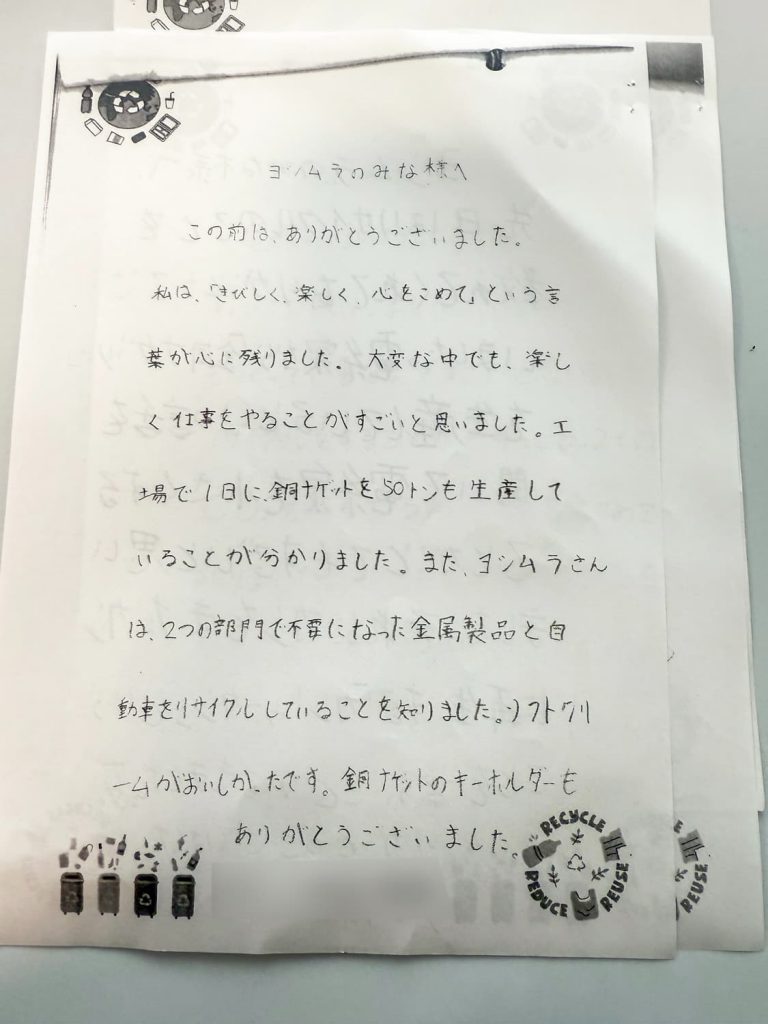 ヨシムラのみな様へ
この前は、ありがとうございました。
私は、「きびしく、楽しく、心をこめて」という言
葉が心に残りました。大変な中でも、楽し
く仕事をやることがすごいと思いました。工
場で1日に、銅ナゲットを50トンも生産して
いることが分かりました。また、ヨシムラさん
は、2つの部門で不要になった金属製品と自
動車をリサイクルしていることを知りました。ソフトクリ
ームがおいしかったです。銅ナゲットのキーホルダーも
ありがとうございました。
RECYCLE
REUSE
REDUCE
REUSE